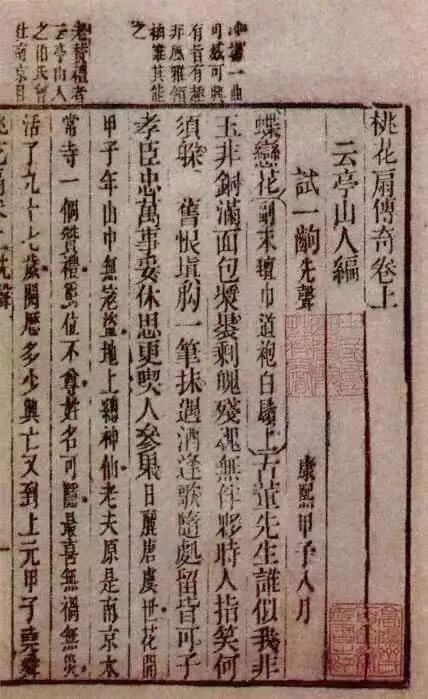 桃花扇傳奇卷上
云亭山人編
試一齣先聲　康熙甲子八月
蝶戀花副末氊巾道袍白鬚上古董先生誰似我非
玉非銅滿面包漿裹剩魄殘魂無伴夥時人指笑何
須躲　舊恨塡胸一筆抹遇酒逢歌隨處留皆可子
孝臣忠萬事妥休思更喫人參果日麗唐虞世花開
甲子年山中無寇盜地上總神仙老夫原是南京太
常寺一個贊禮爵位不尊姓名可隱最喜無禍無災
活了九十七歲閱歷多少興亡又到上元甲子堯舜
桃花扇卷上 先聲
冲場一曲
可感可興
有旨有趣
非風雅領
袖誰其能
之
老贊禮者
云亭山人
之伯氏曾
仕南京目